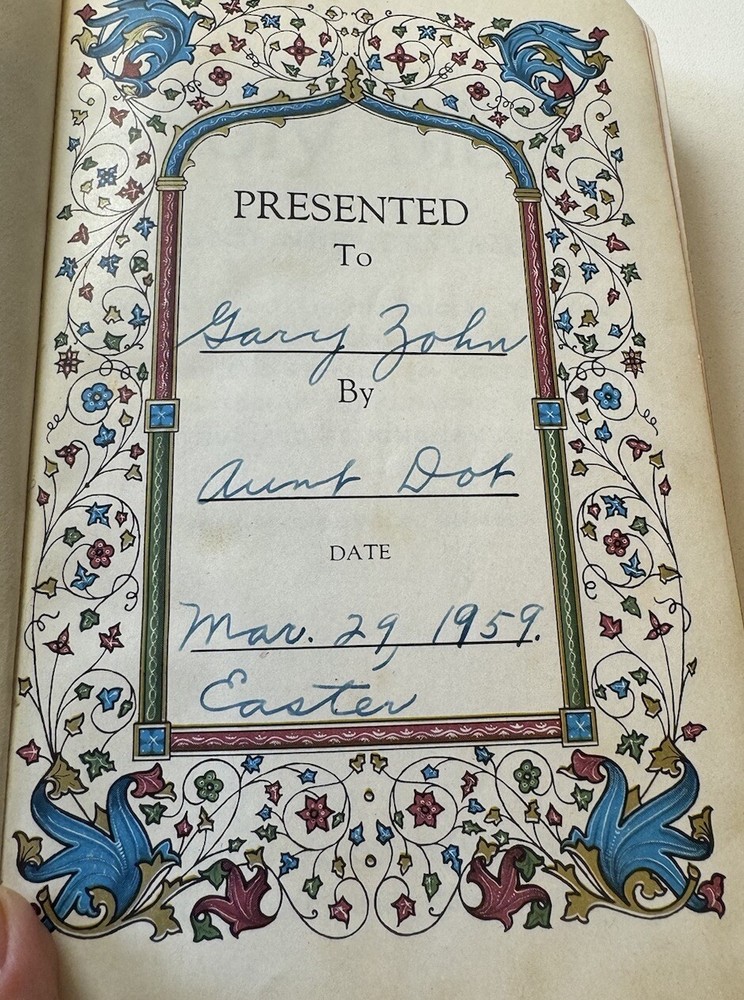 PRESENTED
To
Gary Zohn
By
Aunt Dot
DATE
Mar. 29, 1959.
Easter